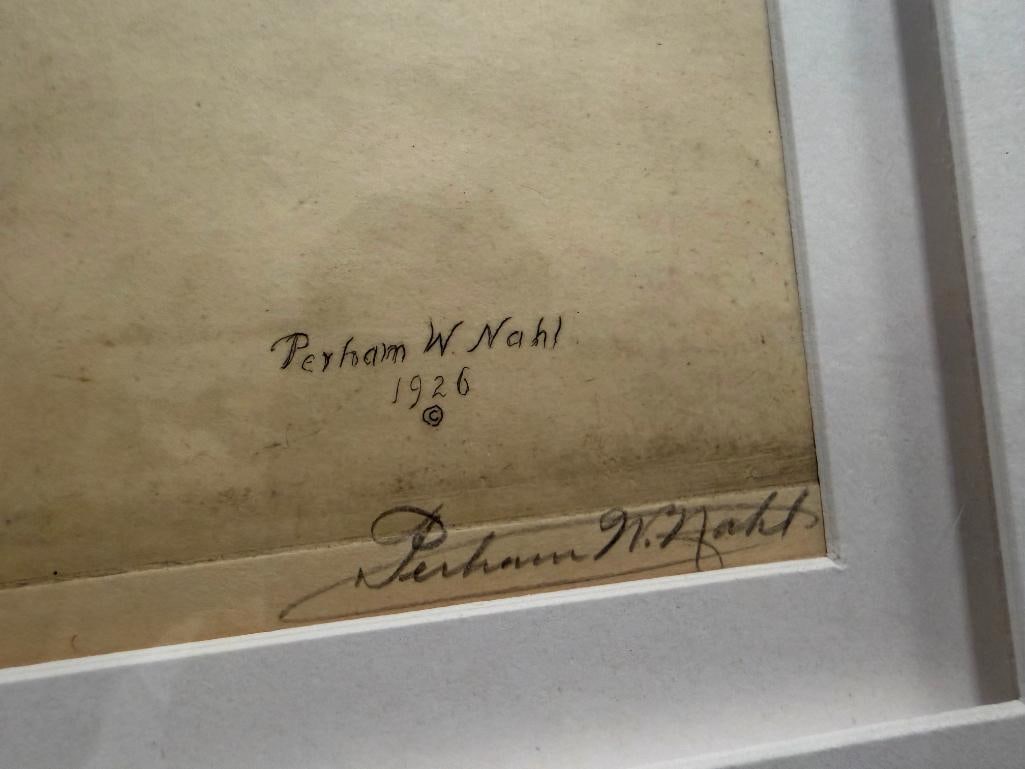 Perham W. Nahl
1926
©
Perham W. Nahl